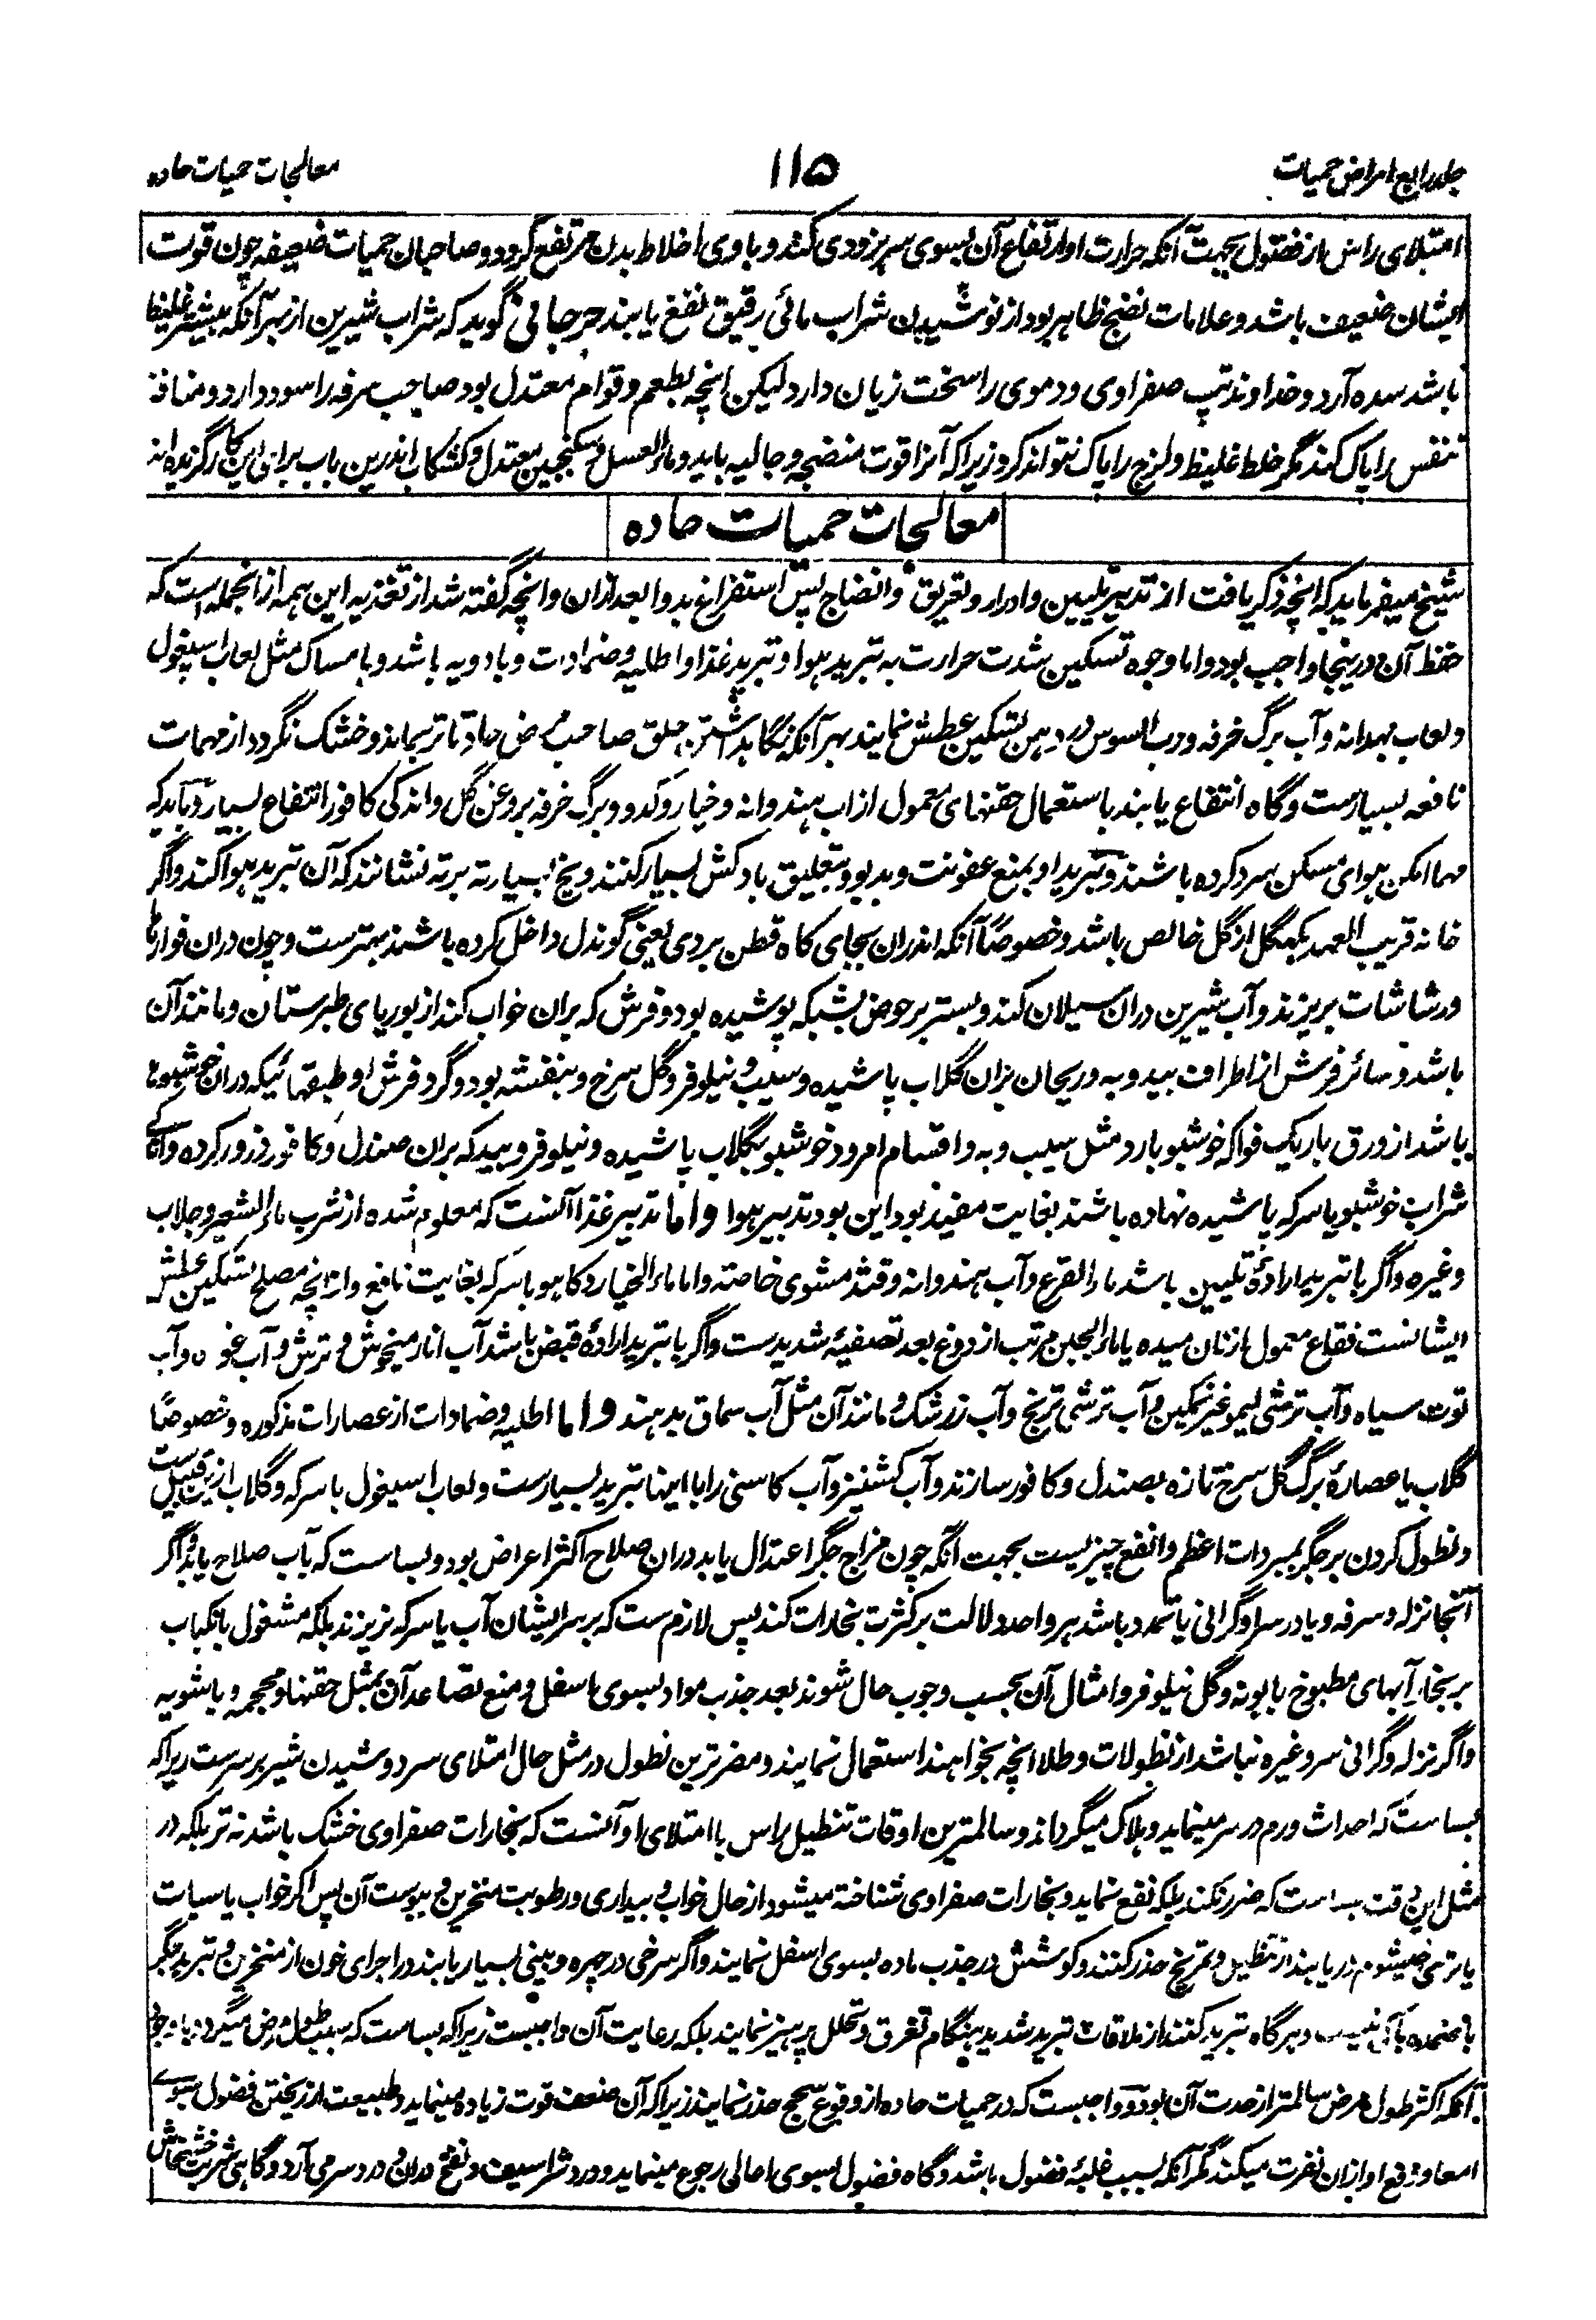 جلد رابع امراض حمیات
۱۱۵
معالجات حمیات حاده
امتلای راس از فضول بجهت آنکه حرارت او ارتفاع آن بسوی سر بزودی کند و باوی اخلاط بدن مرتفع گردد و صاحبان حمیات ضعیفه چون قوت
ایشان ضعیف باشد و علامات نضج ظاهر بود از نوشیدن شراب مائی رقیق نفع یابند جرجانی گوید که شراب شیرین از بهر آنکه بیشتر غلیظ
باشد سده آرد و خداوند تپ صفراوی و دموی را سخت زیان دارد لیکن انچه بطعم و قوام معتدل بود صاحب سرفه را سود دارد و منافذ
تنفس را پاک کند مگر خلط غلیظ و لزج را پاک نتواند کرد زیراکه آنرا قوت منضجه و جالیه باید و ماء العسل و سکنجبین معتدل و کشکاب اندرین باب برای این کار گزیده اند
معالجات حمیات حاده
شیخ میفرماید که انچه ذکر یافت از تدبیر تلیین و ادرار و تعریق و انضاج پس استفراغ بدوا بعد ازان و انچه گفته شد از تغذیه این همه از انجمله است که
حفظ آن درینجا واجب بود و اما وجوه تسکین شدت حرارت به تبرید هوا و تبرید غذا و اطلیه و ضمادات و بادویه باشد و بامساک مثل لعاب اسپغول
و لعاب بهدانه و آب برگ خرفه و رب السوس در دهن تسکین عطش نمایند بهر آنکه نگاهداشتن حلق صاحب مرض حاد تا تر بماند و خشک نگردد از مهمات
نافعه بسیارست و گاه انتفاع یابند باستعمال حقنهای معمول از اب هندوانه و خیار و کدو و برگ خرفه بروغن گل و اندکی کافور انتفاع بسیار و باید که
مهما امکن هوای مسکن سرد کرده باشند و تبرید او بمنع عفونت و بد بو و بتعلیق بادکش بسیار کنند و یخ بسیار ته برته نشانند که آن تبرید هوا کند و اگر
خانه قریب العهد بکهگل از گل خالص باشد و خصوصاً آنکه اندران بجای کاه قطن بردی یعنی گوندل داخل کرده باشند بهترست و چون دران فوارها
و رشاشات بریزند و آب شیرین دران سیلان کند و بستر بر حوض بشبکه پوشیده بود و فرش که بران خواب کند از بوریای طبرستان و مانند آن
باشد و سائر فرش از اطراف بید و به و ریحان بران گلاب پاشیده و سیب و نیلوفر و گل سرخ و بنفشه بود و گرد فرش او طبقهائیکه دران خوشبوها
باشد از ورق باریک فواکه خوشبو بارد مثل سیب و به و اقسام امرود خوشبو بگلاب پاشیده و نیلوفر و بید که بران صندل و کافور ذرور کرده و گاهے
شراب خوشبو یا سرکه پاشیده نهاده باشند بغایت مفید بود این بود تدبیر هوا و اما تدبیر غذا آنست که معلوم شده از شرب ماء الشعیر و جلاب
وغیره و اگر با تبرید ارادۀ تلیین باشد ماء القرع و آب هندوانه و قثد مشوی خاصته و اما ماء الخیار و کاهو با سرکه بغایت نافع و از انچه مصلح تسکین عطش
ایشانست فقاع معمول از نان میده یا ماء الجبن مرتب از دوغ بعد تصفیۀ شدیدست و اگر با تبرید ارادۀ قبض باشد آب انار میخوش و ترش و آب غوره و آب
توت سیاه و آب ترشی لیمو غیر نمکین و آب ترشی ترنج و آب زرشک و مانند آن مثل آب سماق بدهند و اما اطلیه و ضمادات از عصارات مذکوره و خصوصاً
گلاب یا عصارۀ برگ گل سرخ تازه بصندل و کافور سازند و آب کشنیز و آب کاسنی را با اینها تبرید بسیارست و لعاب اسپغول با سرکه و گلاب ازین قبیل ست
و نطول کردن بر جگر بمبردات اعظم و انفع چیزیست بجهت آنکه چون مزاج جگر اعتدال یابد دران صلاح اکثر اعراض بود و بساست که بآب صلاح یابد و اگر
آنجا نزله و سرفه و یا در سر او گرانی یا تمدد باشد هر واحد دلالت بر کثرت بخارات کند پس لازم ست که بر سر ایشان آب یا سرکه نریزند بلکه مشغول بانکباب
بر بخار آبهای مطبوخ بابونه و گل نیلوفر و امثال آن بحسب وجوب حال شوند بعد جذب مواد بسوی اسفل و منع تصاعد آن بمثل حقنها و محجمه و پاشویه
و اگر نزله و گرانی سر وغیره نباشد از نطولات و طلا انچه بخواهند استعمال نمایند و مضرترین نطول در مثل حال امتلای سر دوشیدن شیر بر سرست زیراکه
بساست که احداث ورم در سر مینماید و هلاک میگرداند و سالمترین اوقات تنطیل راس با امتلای او آنست که بخارات صفراوی خشک باشد نه تر بلکه در
مثل این وقت بساست که ضرر نکند بلکه نفع نماید و بخارات صفراوی شناخته میشود از حال خواب و بیداری و رطوبت منخرین و یبوست آن پس اگر خواب یا سبات
یا تری خیشوم دریابند از تنطیل و تمریخ حذر کنند و کوشش در جذب ماده بسوی اسفل نمایند و اگر سرخی در چهره و بینی بسیار یابند در اجرای خون از منخرین و تبرید جگر
باضمده و هرگاه تبرید کنند از ملاقات تبرید شدید هنگام تعرق و تحلل پرهیز نمایند بلکه رعایت آن واجبست زیراکه بساست که سبب طول مرض میگردد با وجود
آنکه اکثر طول مرض سالمتر از حدت آن بود و واجبست که در حمیات حاده از وقوع سحج حذر نمایند زیراکه آن ضعف قوت زیاده مینماید و طبیعت از ریختن فضول بسوے
امعا و دفع او ازان نفرت میکند مگر آنکه بسبب غلبۀ فضول باشد و گاه فضول بسوی اعالی رجوع مینماید و در شراسیف و نفخ دران و درد سر می آرد و گاهی شربت خشخاش